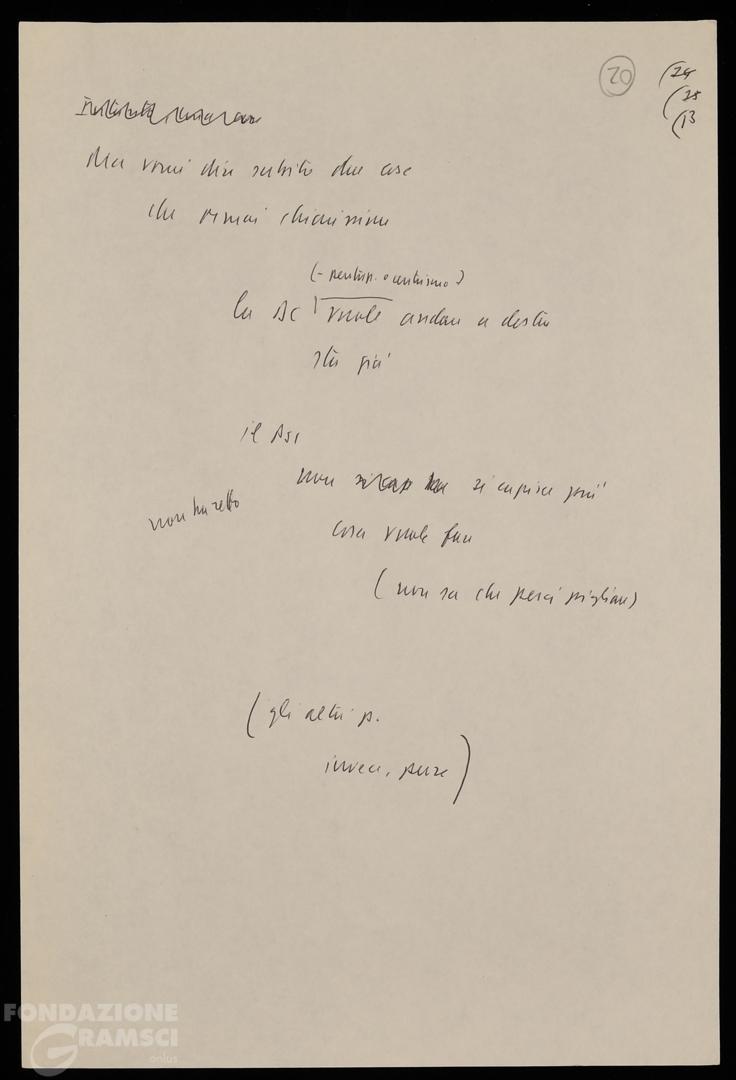 20
(24
(25
(13
Ma vorrei dire subito due cose
che ormai chiarissime
(- pentap. o centrismo)
la DC vuole andare a destra
sta già
il PSI
non si capisce più
non ha retto
cosa vuole fare
(non sa che pesci pigliare)
(gli altri p.
invece, pure)
FONDAZIONE
GRAMSCI
onlus